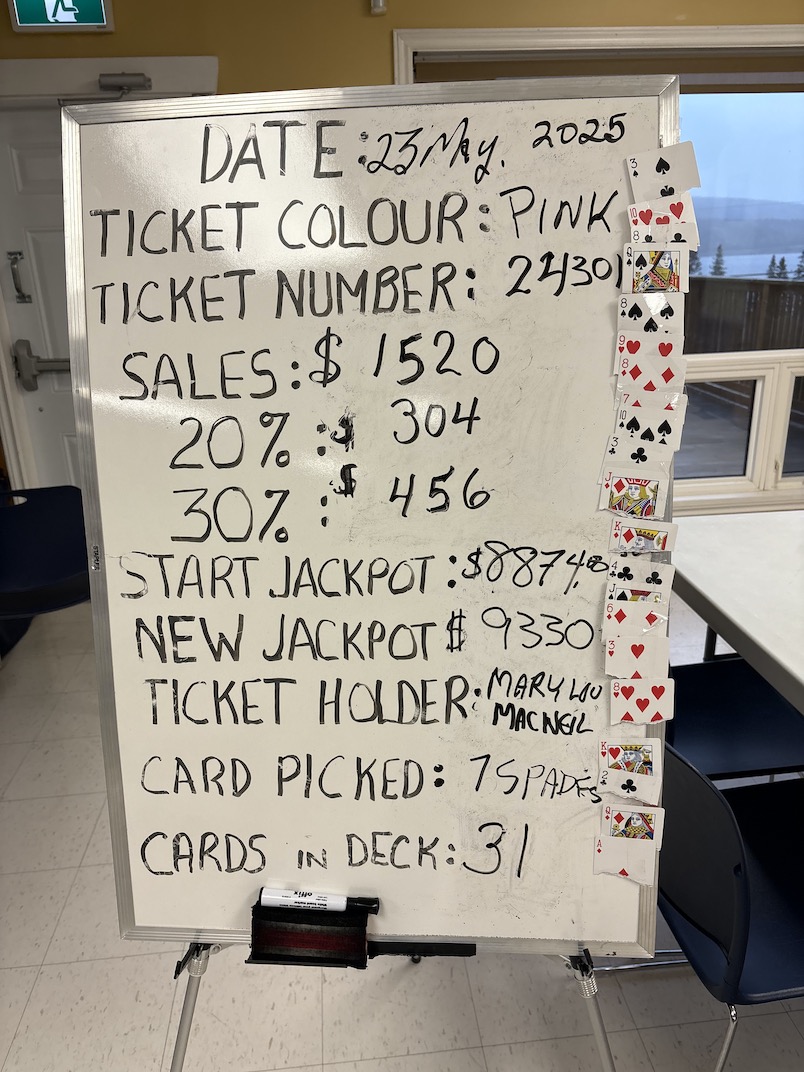 DATE: 23 May. 2025
TICKET COLOUR: PINK
TICKET NUMBER: 224301
SALES: $ 1520
20% : $ 304
30% : $ 456
START JACKPOT: $8874.00
NEW JACKPOT $ 9330
TICKET HOLDER: MARY LOU
MACNEIL
CARD PICKED: 7 SPADES
CARDS IN DECK: 31
3
10
8
Q
8
9
8
7
10
3
J
K
4
J
6
3
8
K
2
Q
A
offix